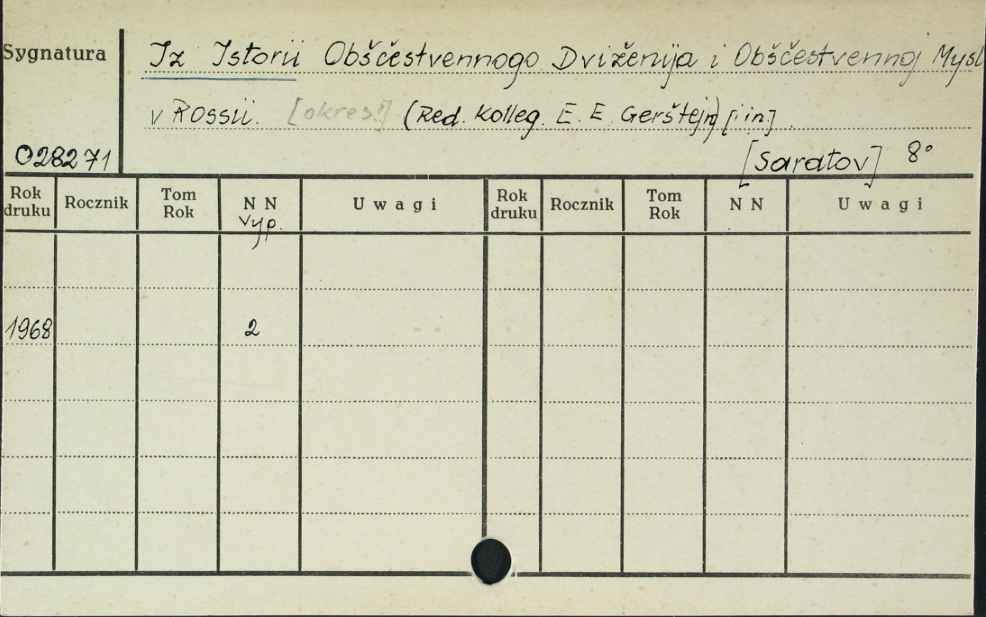 Sygnatura
Iz Istorii Obščestvennogo Dviženija i Obščestvennoj Mysl
v Rossii. [okres!] (Red. Kolleg. E. E. Gerštejn) [i in.]
028271 [Saratov] 8°
Rok druku Rocznik Tom Rok N N Uwagi Rok druku Rocznik Tom Rok N N Uwagi
Vyp.
1968 2